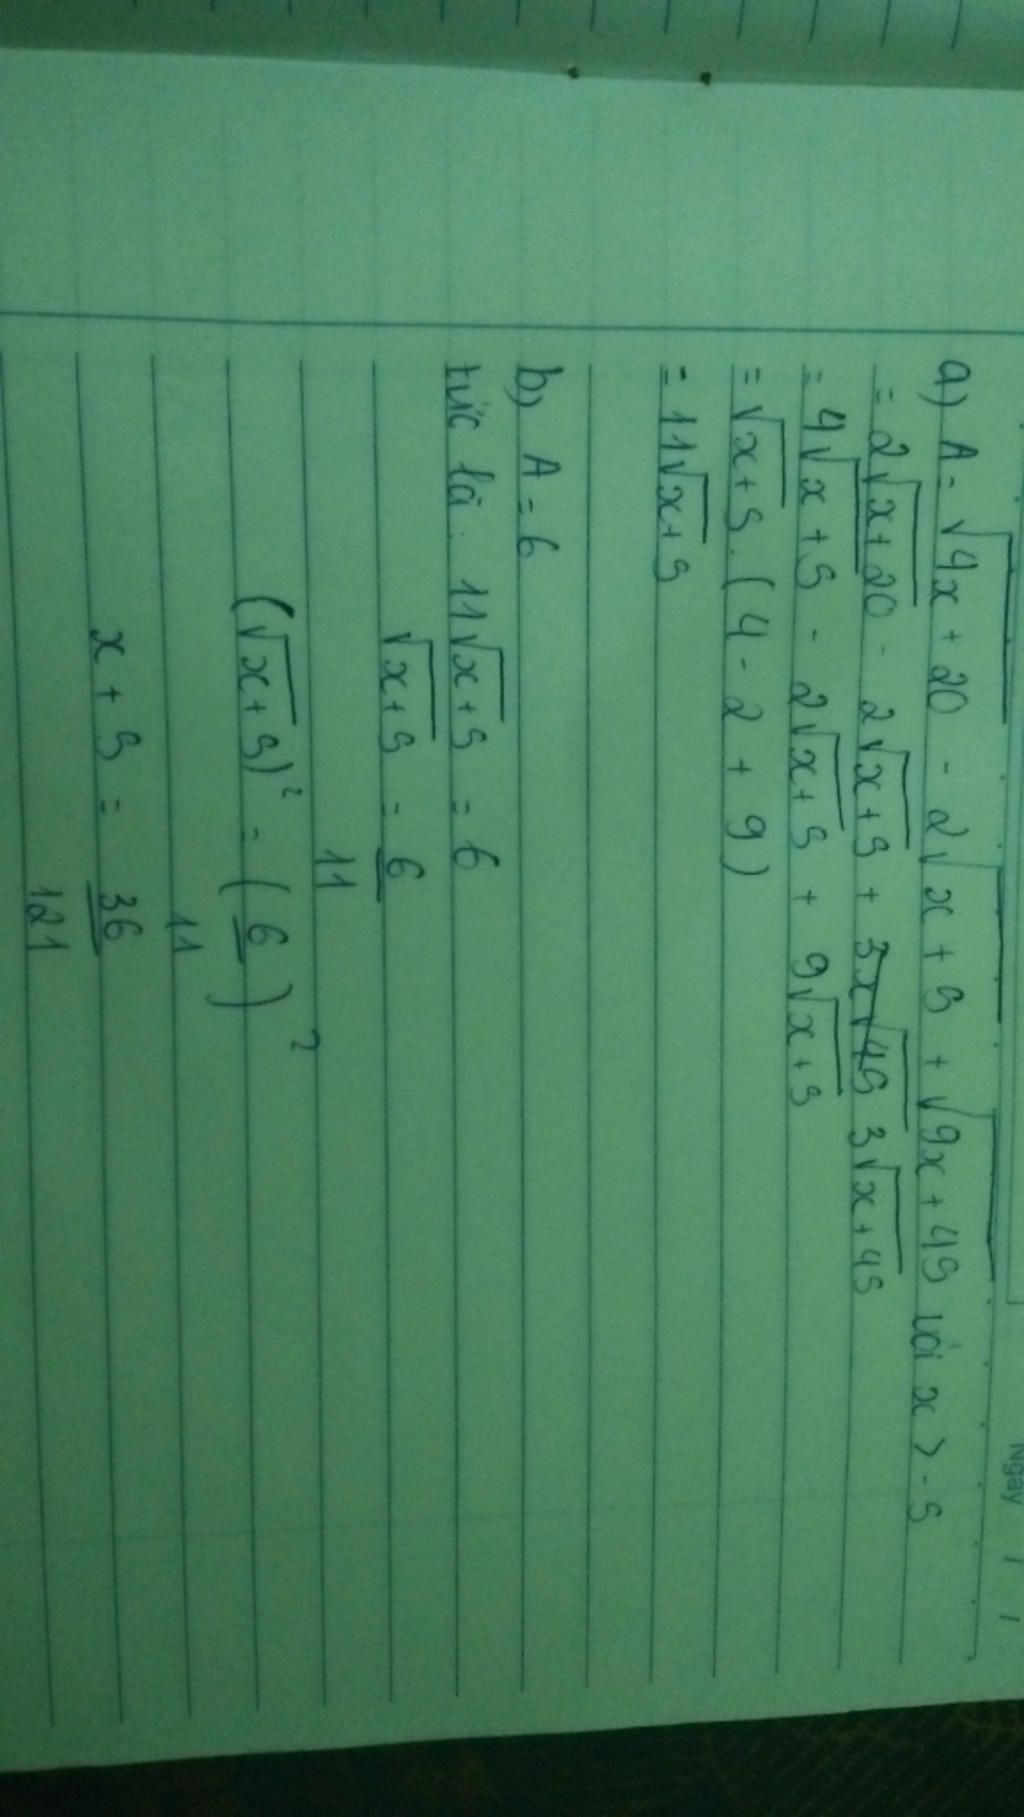 Ngày / /
a) A = √4x + 20 - 2√x + 5 + √9x + 45 với x > -5
= 2√x+20 - 2√x+5 + 3x√45 3√x+45
= 4√x+5 - 2√x+5 + 9√x+5
= √x+5 . (4 - 2 + 9)
= 11√x+5
b) A = 6
tức là: 11√x+5 = 6
√x+5 = 6/11
(√x+5)² = (6/11)²
x + 5 = 36/121